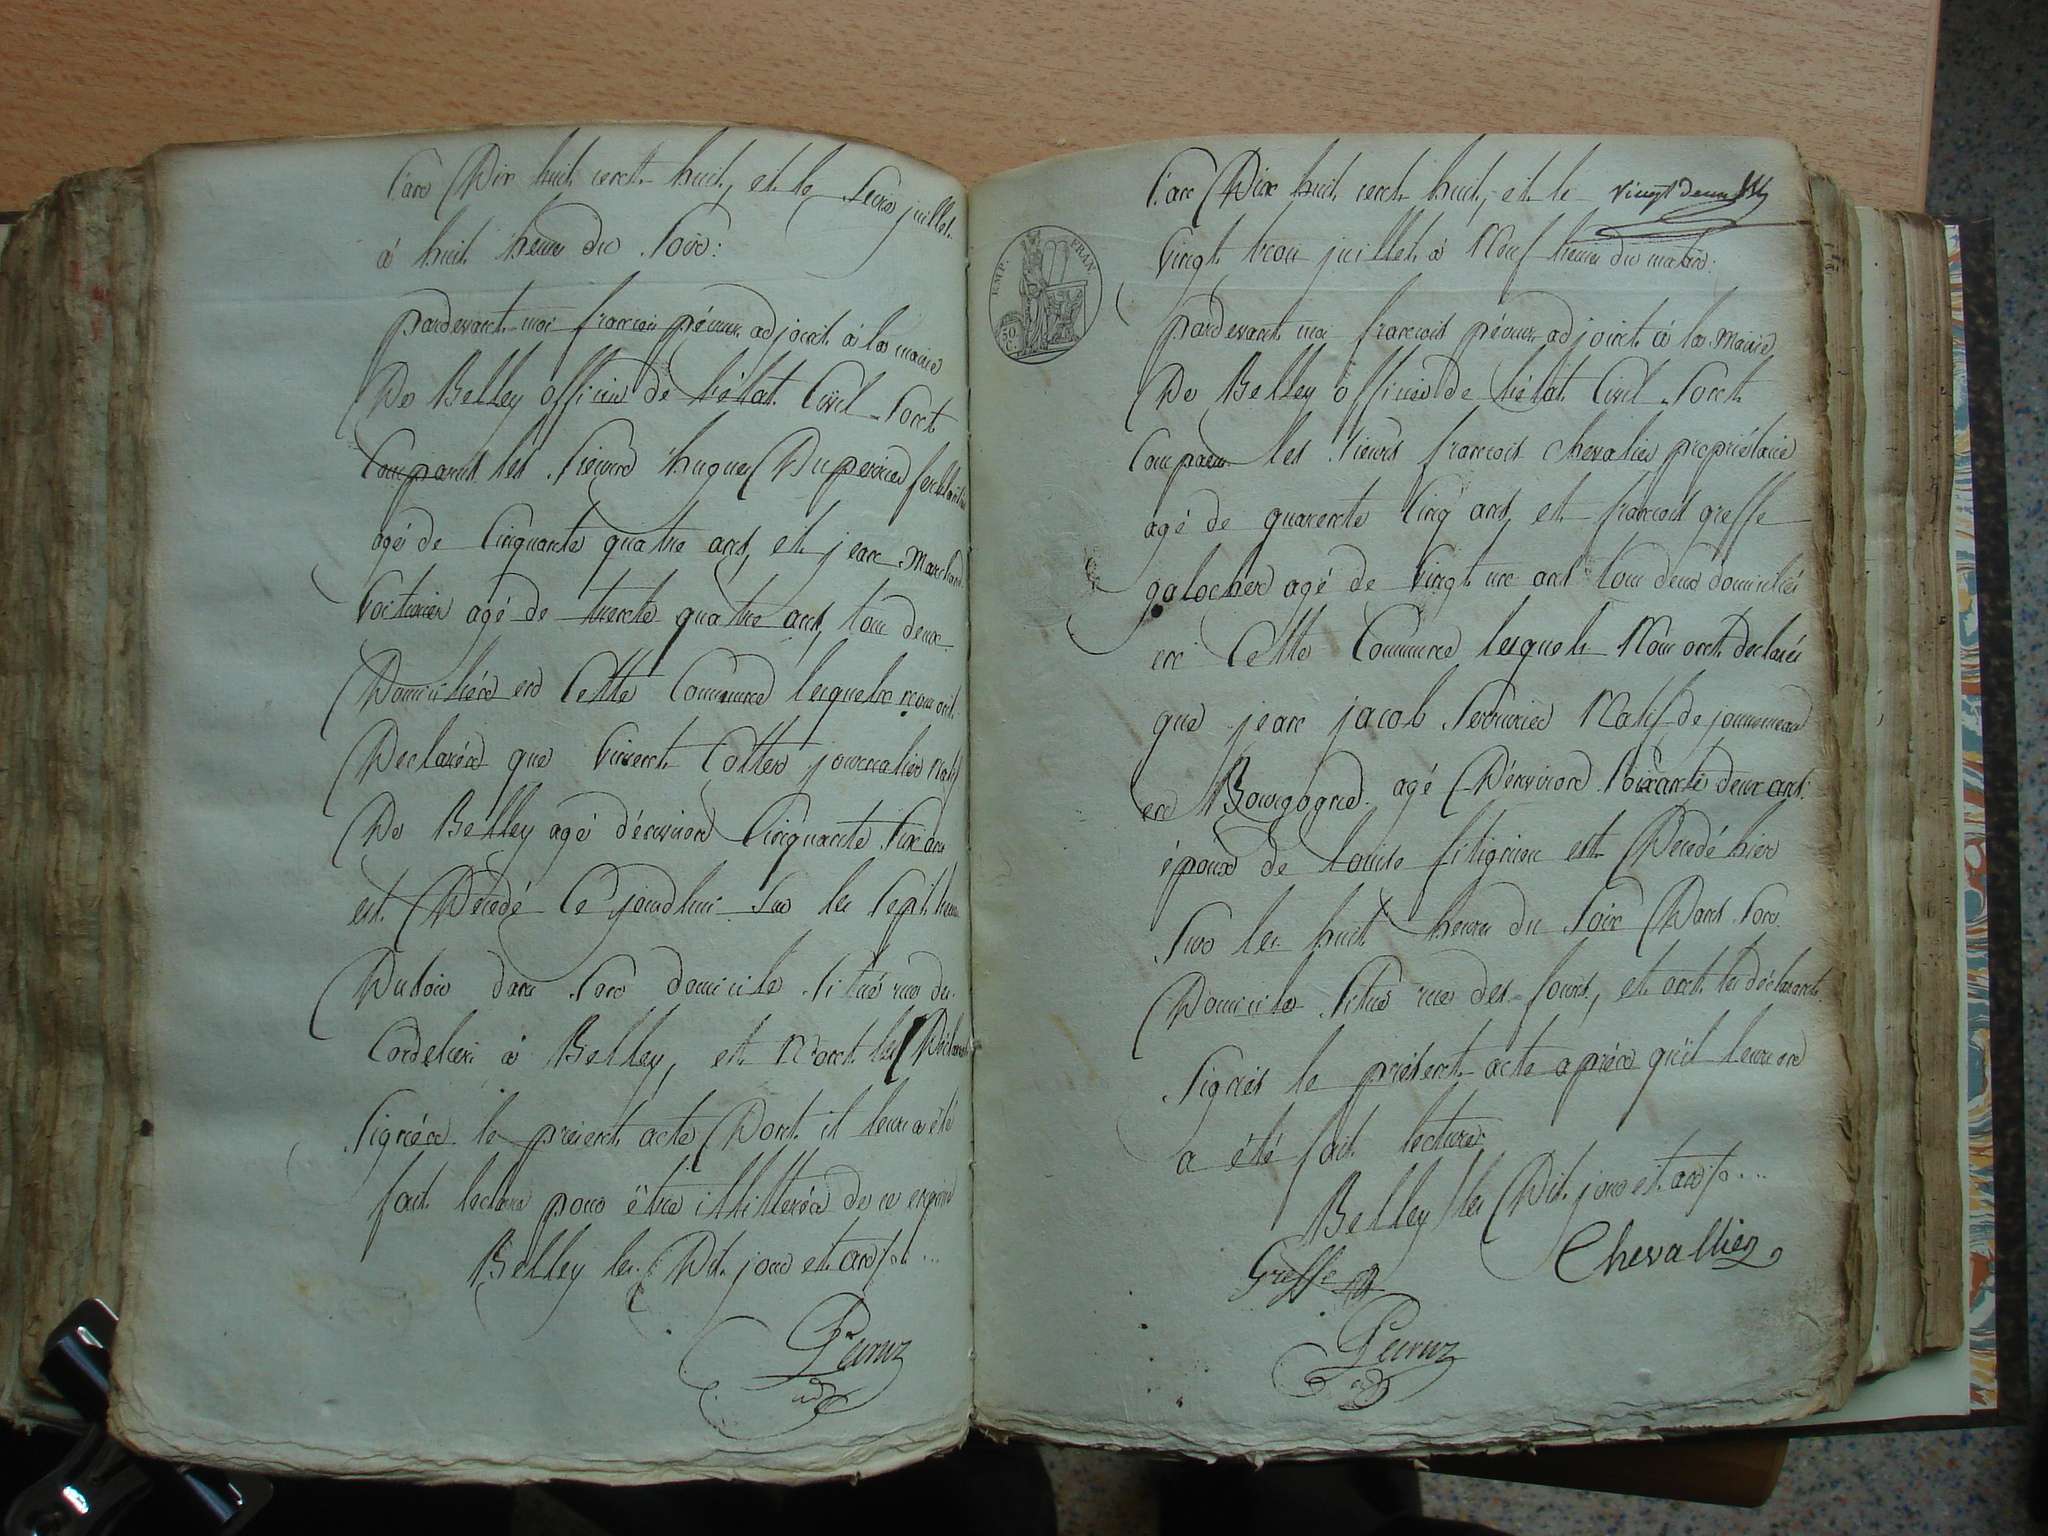 L'an Dix huit cent huit, et le seize juillet
à huit heures du Soir:
pardevant moi francois péruz adjoint à la mairie
De Belley officier de l'état Civil Sont
Comparus les Sieurs hugues Duperrier
agé de Cinquante quatre ans, et jean Marchand
Voiturier agé de trente quatre ans, tous deux
Domiciliés en Cette Commune lesquels nous ont
Déclarés que Vincent Cottet journalier Natif
De Belley agé d'environ Cinquante Six ans
est Décédé Ce jourdhui Sur les Sept heures
Du soir dans Son domicile Situé rue des
Cordeliers à Belley, et N'ont les Déclarants
Signés le présent acte Dont il leur a été
fait lecture pour être illitterés de ce enquis
Belley les Dit jour et an
Péruz
adj
L'an Dix huit cent huit, et le vingt deux
EMP. FRAN.
50
C.
Vingt trois juillet à Neuf heures du matin:
pardevant moi francois péruz adjoint à la Mairie
De Belley officier de l'état Civil Sont
Comparus les Sieurs francois Chevalier propriétaire
agé de quarente Cinq ans, et francois greffe
galocher agé de Vingt un ans tous deux domiciliés
en Cette Commune lesquels Nous ont Déclarés
que jean jacob Serrurier Natif de
en Bourgogne agé D'environ Soixante deux ans
époux de Louise est Décédé hier
Sur les huit heures du Soir Dans Son
Domicile Situé rue des fours, et ont les déclarants
Signés le présent acte après qu'il leur en
a été fait lecture
Belley les Dit jour et an
Greffe Chevallier
Péruz
adj